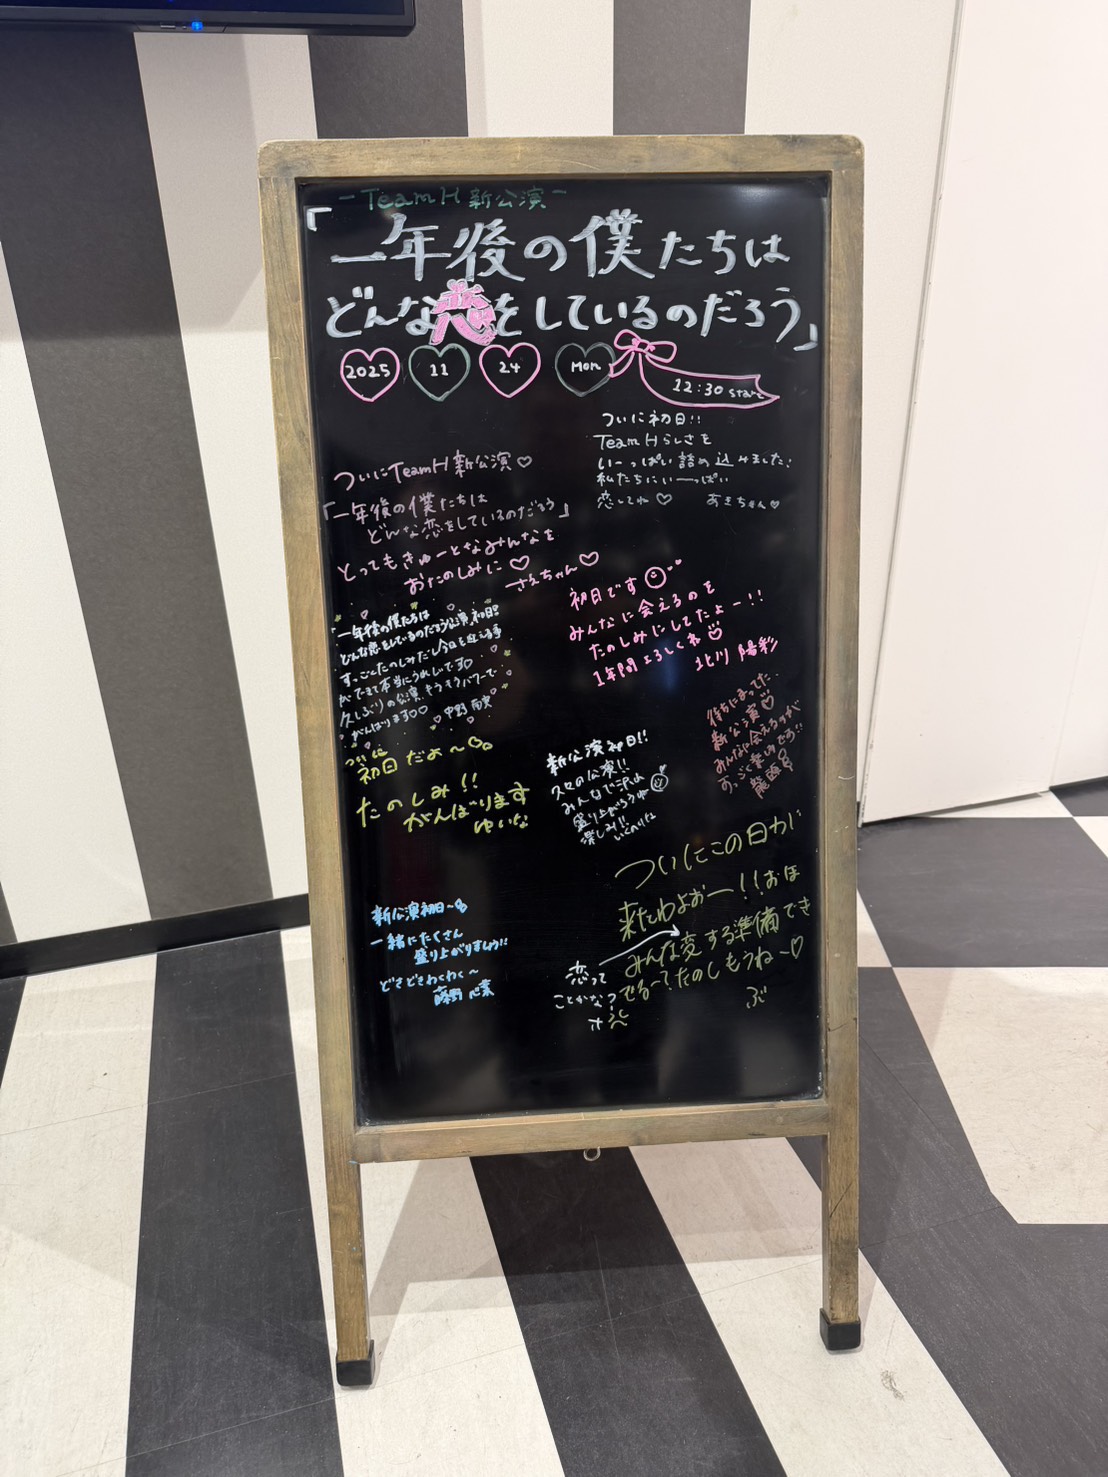 －TeamH新公演－
「一年後の僕たちは
どんな恋をしているのだろう」
2025 11 24 Mon 12:30 start
ついに初日!!
TeamHらしさを
いーっぱい詰め込みました!
私たちにいーっぱい
恋してね♡ あきちゃん♡
ついにTeamH新公演♡
「一年後の僕たちは
どんな恋をしているのだろう」
とってもきゅーとなみんなを
おたのしみに♡
さえちゃん♡
初日です
みんなに会えるのを
たのしみにしてたよー!!
1年間よろしくネ♡
北川 陽彩
「一年後の僕たちは
どんな恋をしているのだろう」公演、初日!!
すっごくたのしみだし今日を迎える事
ができて本当にうれしいです♡
久しぶりの公演、
がんばります♡♡
待ちにまった
新公演♡
みんなに会えるのが
すっごく楽しみです!!
ついに
初日だよ〜
たのしみ!!
がんばります
ゆいな
新公演初日!!
久々の公演!!
みんなで沢山
盛り上がろうね
楽しみ!!
ついにこの日が
来たわよおー!!おほ
みんな変する準備でき
でる〜?たのしもうね〜♡
ぶ
恋って
ことかな?
新公演初日〜
一緒にたくさん
盛り上がりましょう!!
どきどきわくわく〜
藤野 心葉